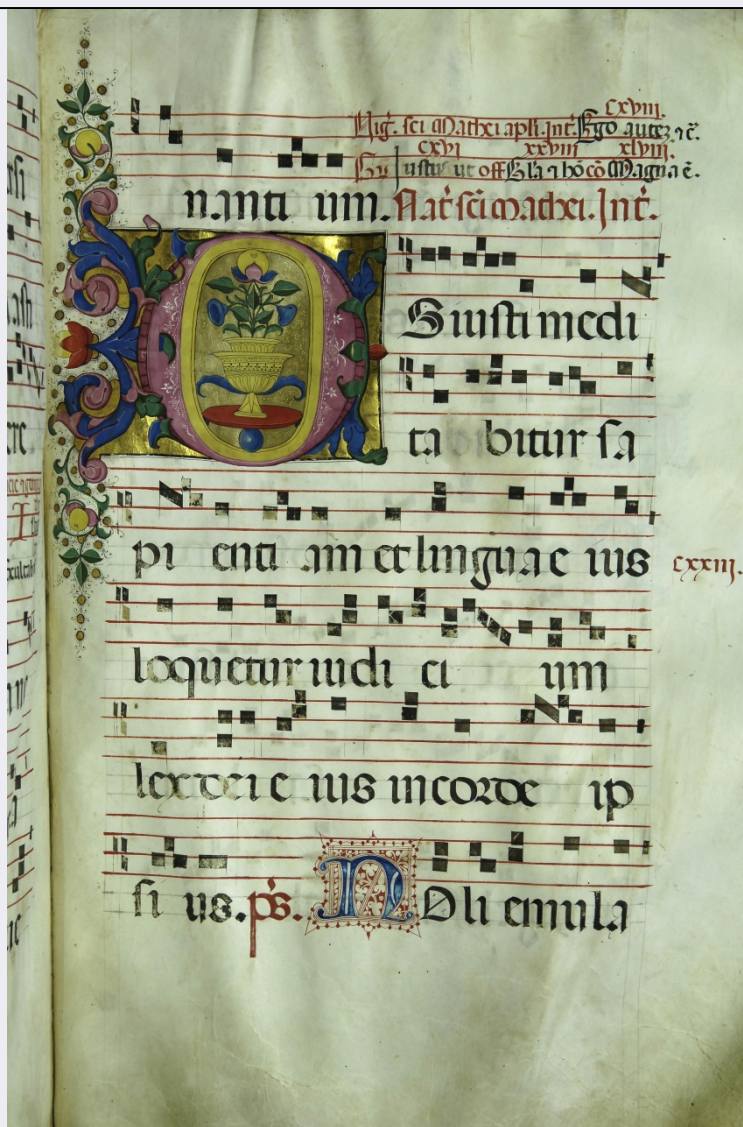 cxviii.
Uig̃. sci Mathei apłi. Int̃. Ego autez ⁊c̃.
cxvi xxviii xlviii.
Gr̃ Iustus ut off Gła ⁊ hõ cõ Magna ⁊c̃.
nanti um. Nat̃ sci Mathei. Int̃.
OS iusti medi
ta bitur sa
pi enti am et lingua e ius cxxiii.
loquetur iudi ci um
lex dei e ius in corde ip
si us. p̃s. Noli emula